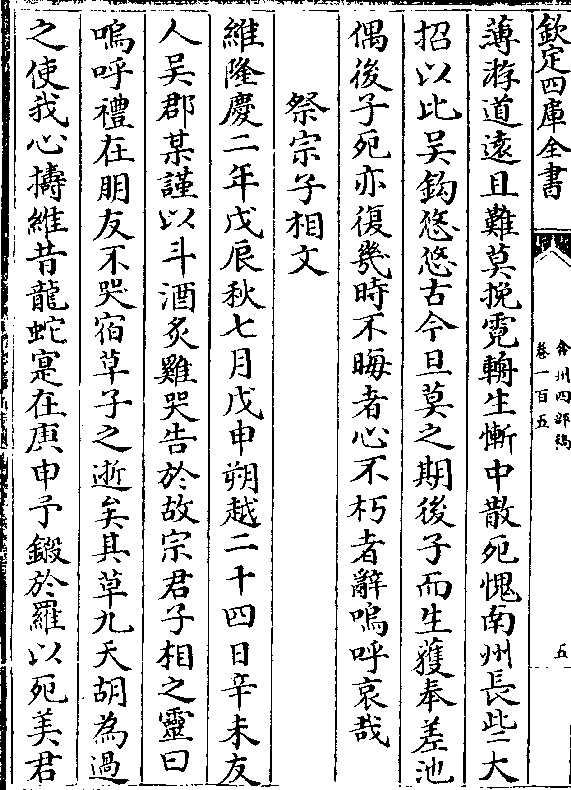 欽定四庫全書
弇州四部稿
卷一百五
五
薄游道遠且難莫挽霓輀生慚中散死愧南州長此大
招以比吴鈎悠悠古今旦莫之期後子而生獲奉差池
偶後子死亦復幾時不晦者心不朽者辭嗚呼哀哉
祭宗子相文
維隆慶二年戊辰秋七月戊申朔越二十四日辛未友
人吴郡某謹以斗酒炙雞哭告於故宗君子相之靈曰
嗚呼禮在朋友不哭宿草子之逝矣其草九天胡為過
之使我心擣維昔龍蛇寔在庚申予鍛於羅以死美君